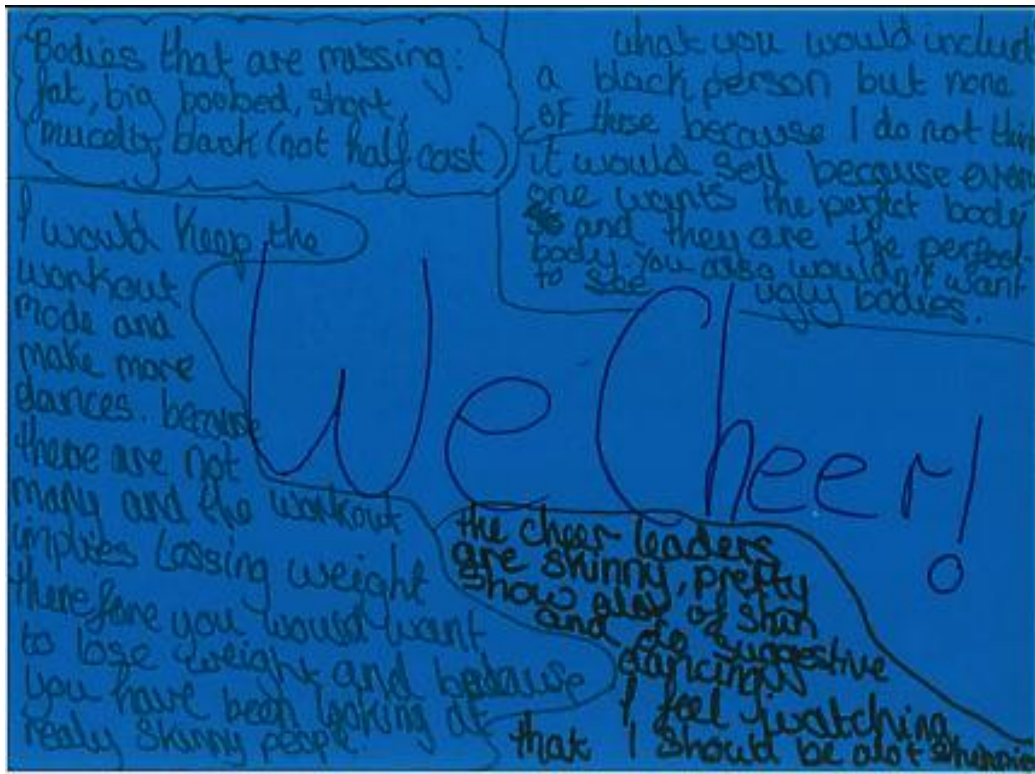 Bodies that are missing:
fat, big boobed, short,
mucelly, black (not half cast)
what you would includ
a black person but none
of these because I do not thin
it would sell because every
one wants the perfect body
and they are the perfect
body you also wouldn't want
to see ugly bodies.
I would keep the
workout
mode and
make more
dances. because
there are not
many and the workout
implies lossing weight
therefore you would want
to lose weight and because
you have been looking at
realy skinny people
We Cheer!
the cheer leaders
are skinny, pretty
show alot of skin
and do suggestive
dancing
I feel watching
that I should be alot skinnie